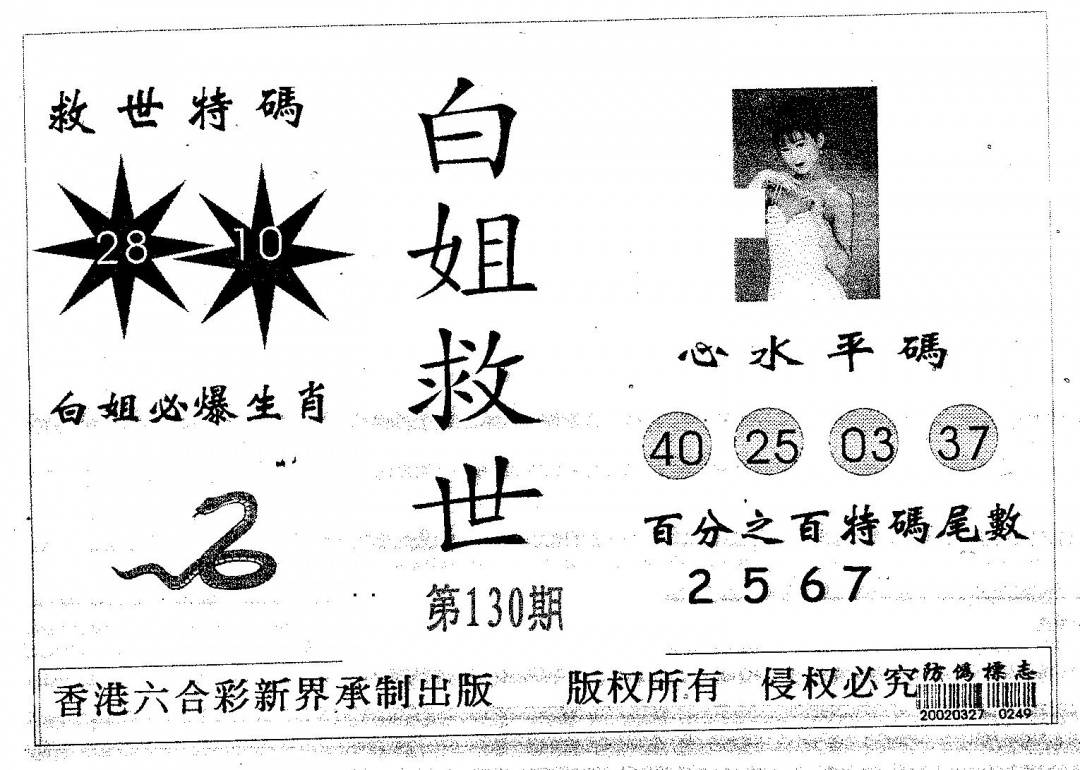 救世特碼
28 10
白姐必爆生肖
白姐救世
第130期
心水平碼
40 25 03 37
百分之百特碼尾數
2 5 6 7
香港六合彩新界承制出版 版权所有 侵权必究
防偽標志
20020327 0249